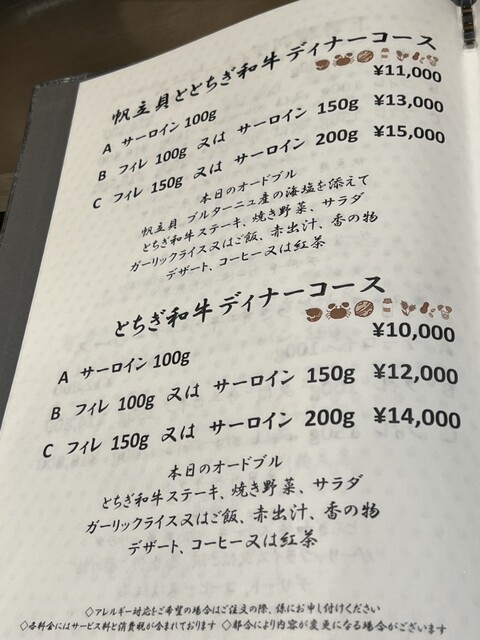 帆立貝ととちぎ和牛ディナーコース
A サーロイン100g ¥11,000
B フィレ 100g 又は サーロイン 150g ¥13,000
C フィレ 150g 又は サーロイン 200g ¥15,000
本日のオードブル
帆立貝 ブルターニュ産の海塩を添えて
とちぎ和牛ステーキ、焼き野菜、サラダ
ガーリックライス又はご飯、赤出汁、香の物
デザート、コーヒー又は紅茶
とちぎ和牛ディナーコース
A サーロイン100g ¥10,000
B フィレ 100g 又は サーロイン 150g ¥12,000
C フィレ 150g 又は サーロイン 200g ¥14,000
本日のオードブル
とちぎ和牛ステーキ、焼き野菜、サラダ
ガーリックライス又はご飯、赤出汁、香の物
デザート、コーヒー又は紅茶
◇アレルギー対応をご希望の場合はご注文の際、係にお申し付けください
◇各料金にはサービス料と消費税が含まれております ◇都合により内容が変更になる場合がございます